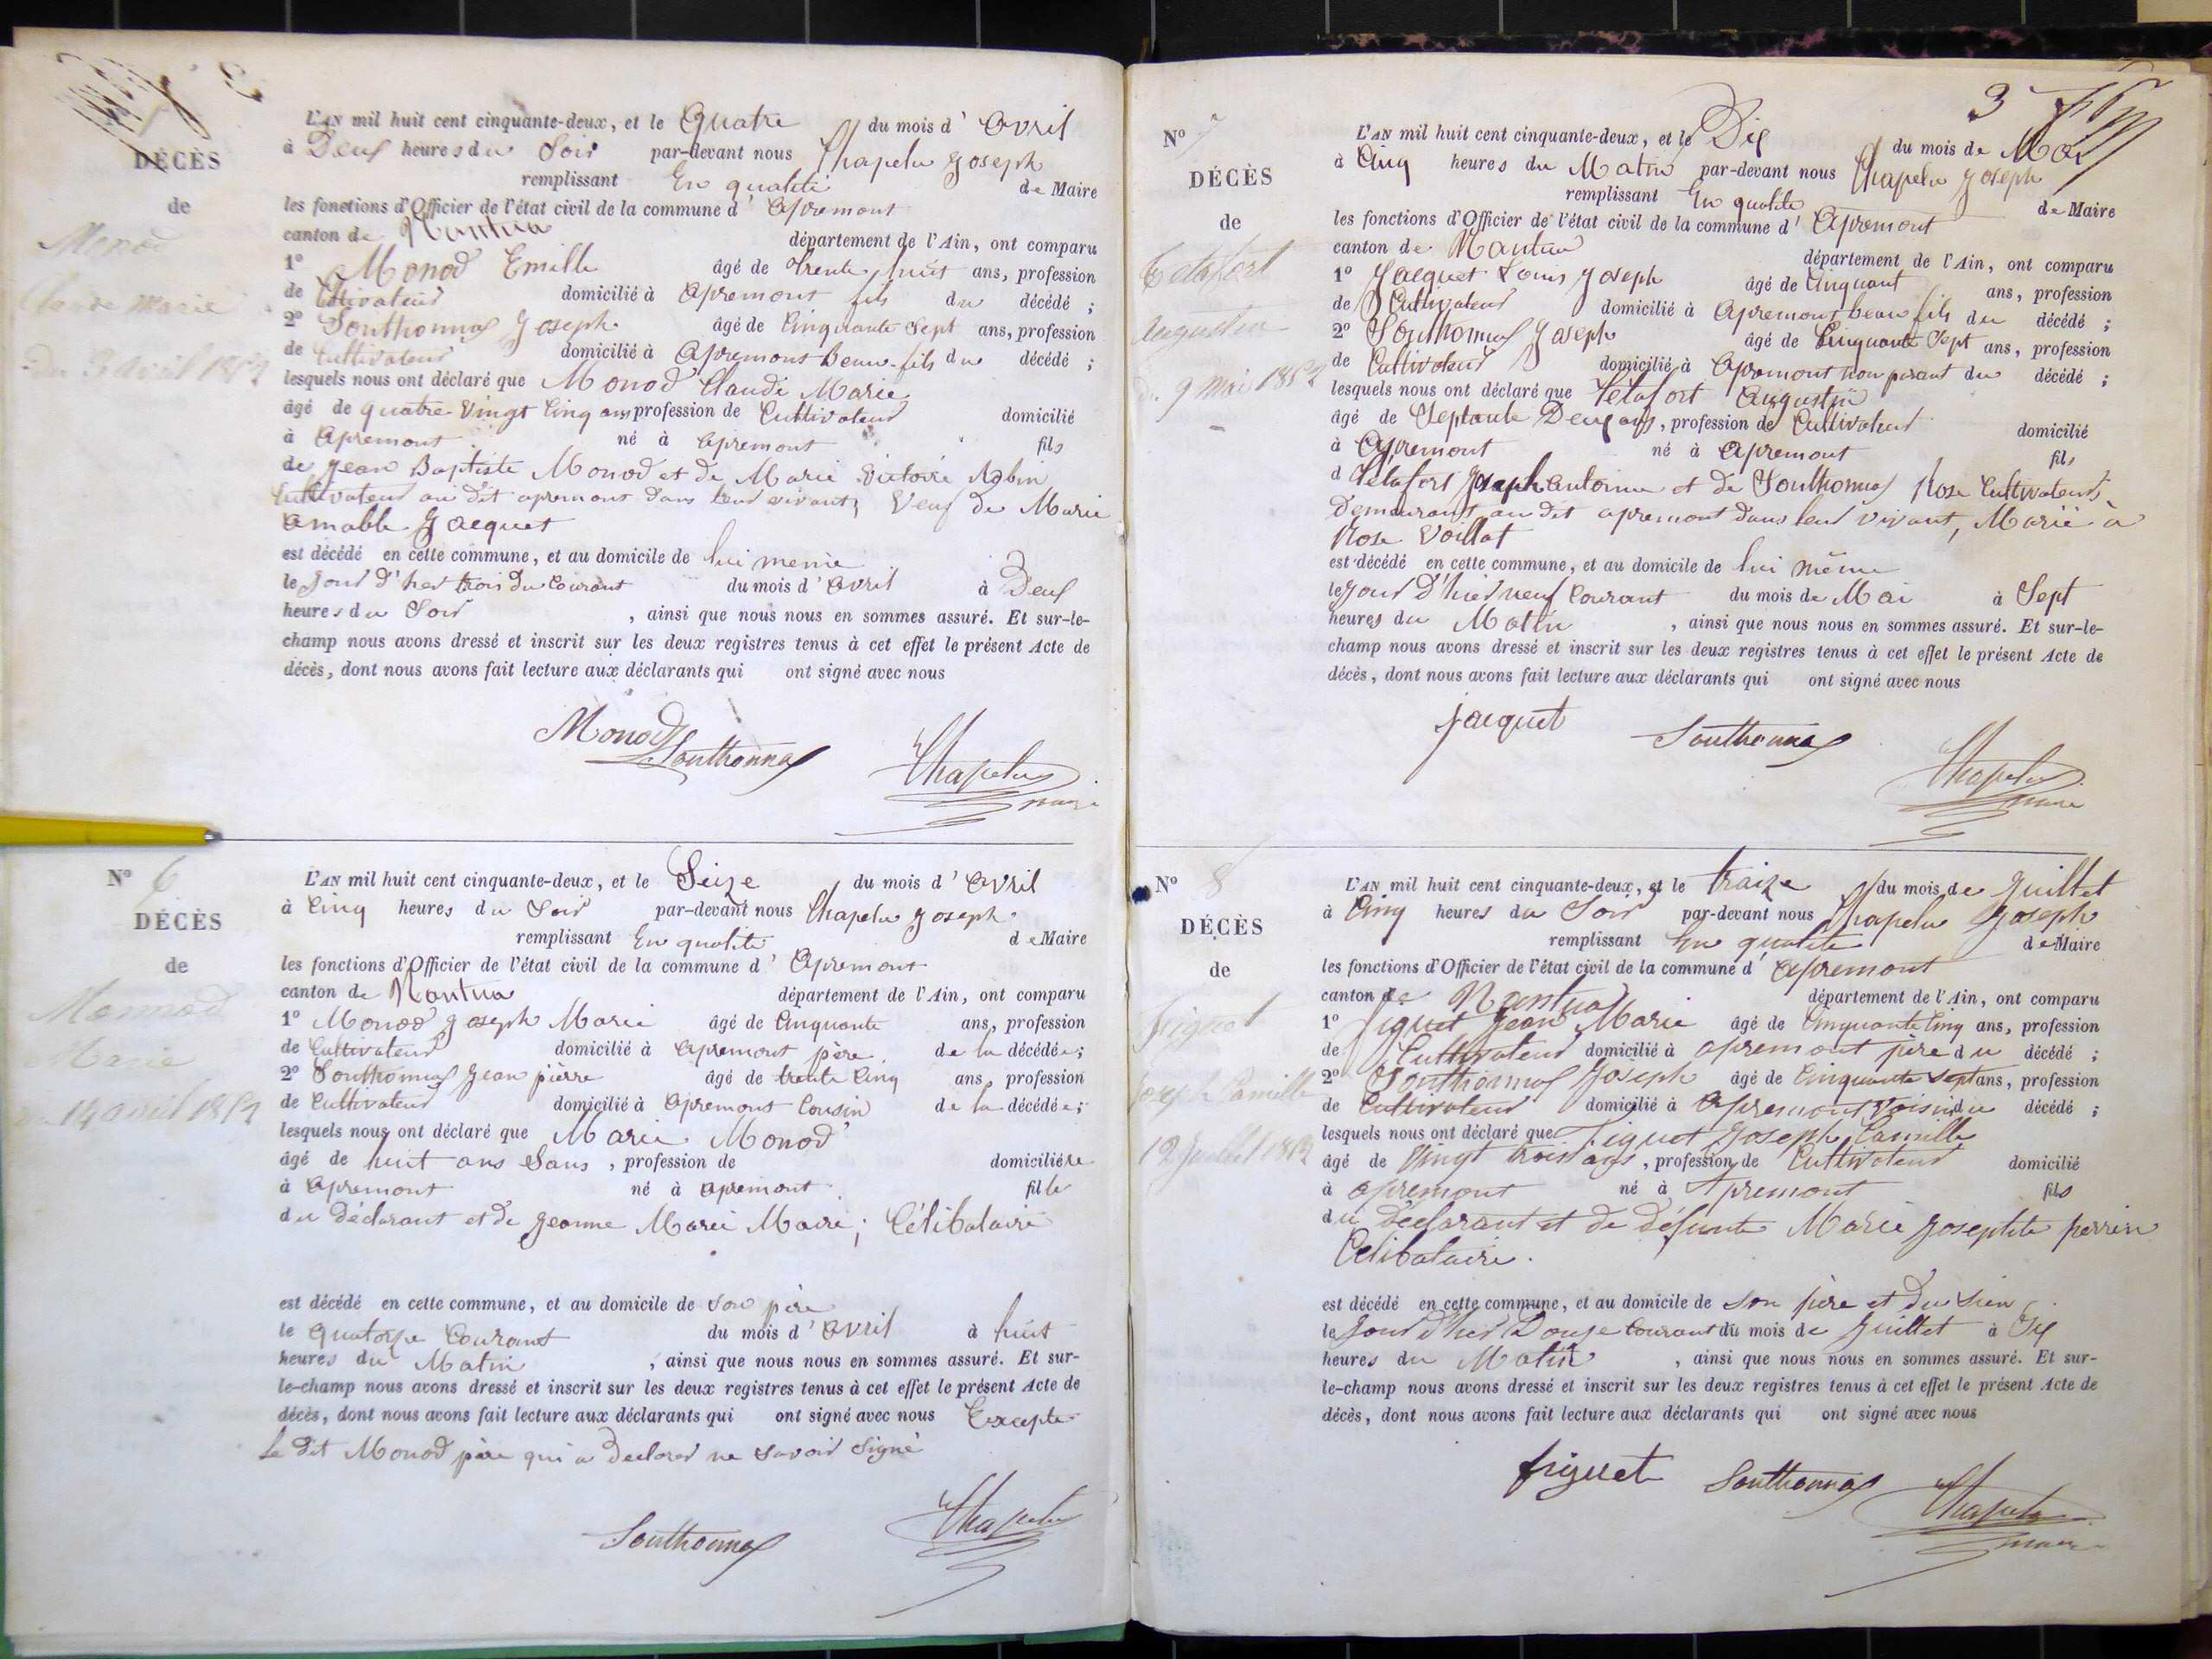 DÉCÈS
de
Monod
Claude Marie
Du 3 avril 1852
L'AN mil huit cent cinquante-deux, et le Quatre du mois d' Avril
à Deux heures du Soir par-devant nous Chapelu Joseph
remplissant En qualité de Maire
les fonctions d'Officier de l'état civil de la commune d' Apremont
canton de Nantua département de l'Ain, ont comparu
1° Monod Emille âgé de trente huit ans, profession
de Cultivateur domicilié à Apremont fils du décédé ;
2° Southonnax Joseph âgé de Cinquante Sept ans, profession
de Cultivateur domicilié à Apremont Beau-fils du décédé ;
lesquels nous ont déclaré que Monod Claude Marie
âgé de quatre Vingt Cinq ans profession de Cultivateur domicilié
à Apremont né à Apremont fils
de Jean Baptiste Monod et de Marie Victoire Robin
Cultivateur au dit apremont dans leur vivant, Veuf de Marie
Amable Jacquet
est décédé en cette commune, et au domicile de lui meme
le Jour d'hier trois du Courant du mois d' Avril à Deux
heures du Soir , ainsi que nous nous en sommes assuré. Et sur-le-
champ nous avons dressé et inscrit sur les deux registres tenus à cet effet le présent Acte de
décès, dont nous avons fait lecture aux déclarants qui ont signé avec nous
Monod Southonnax Chapelu
maire
N° 6
DÉCÈS
de
Monnod
Marie
du 14 avril 1852
L'AN mil huit cent cinquante-deux, et le Seize du mois d' Avril
à Cinq heures du Soir par-devant nous Chapelu Joseph
remplissant En qualité de Maire
les fonctions d'Officier de l'état civil de la commune d' Apremont
canton de Nantua département de l'Ain, ont comparu
1° Monod Joseph Marie âgé de Cinquante ans, profession
de Cultivateur domicilié à Apremont père de la décédée;
2° Southonnax Jean pierre âgé de trente Cinq ans, profession
de Cultivateur domicilié à Apremont Cousin de la décédée;
lesquels nous ont déclaré que Marie Monod
âgé de huit ans Sans , profession de domiciliére
à Apremont né à apremont fille
du déclarant et de Jeanne Marie Maire ; Célibataire
est décédé en cette commune, et au domicile de Son père
le quatorze Courant du mois d' Avril à huit
heures du Matin , ainsi que nous nous en sommes assuré. Et sur-
le-champ nous avons dressé et inscrit sur les deux registres tenus à cet effet le présent Acte de
décès, dont nous avons fait lecture aux déclarants qui ont signé avec nous Excepte
le dit Monod père qui a Declarer ne Savoir Signé
Southonnax Chapelu
3
N° 7
DÉCÈS
de
Tétafort
Augustin
du 9 Mai 1852
L'AN mil huit cent cinquante-deux, et le Dix du mois de Mai
à Cinq heures du Matin par-devant nous Chapelu Joseph
remplissant En qualité de Maire
les fonctions d'Officier de l'état civil de la commune d' Apremont
canton de Nantua département de l'Ain, ont comparu
1° Jacquet Louis Joseph âgé de Cinquant ans, profession
de Cultivateur domicilié à Apremont beau fils du décédé ;
2° Southonnax Joseph âgé de Cinquante Sept ans, profession
de Cultivateur domicilié à Apremont non parant du décédé ;
lesquels nous ont déclaré que Tétafort Augustin
âgé de Septante Deux ans, profession de Cultivateur domicilié
à Apremont né à Apremont fils
d Tétafort Joseph Antoine et de Southonnax Rose Cultivateurs
Demeurant au dit apremont dans leur vivant, Marié à
Rose Voillat
est décédé en cette commune, et au domicile de lui même
le jour D'hier neuf Courant du mois de Mai à Sept
heures du Matin , ainsi que nous nous en sommes assuré. Et sur-le-
champ nous avons dressé et inscrit sur les deux registres tenus à cet effet le présent Acte de
décès, dont nous avons fait lecture aux déclarants qui ont signé avec nous
jacquet Southonnax Chapelu
maire
N° 8
DÉCÈS
de
Figuet
Joseph Camille
12 Juillet 1852
L'AN mil huit cent cinquante-deux, et le traize du mois de Juillet
à Cinq heures du Soir par-devant nous Chapelu Joseph
remplissant En qualité de Maire
les fonctions d'Officier de l'état civil de la commune d' Apremont
canton de Nantua département de l'Ain, ont comparu
1° Figuet Jean Marie âgé de Cinquante Cinq ans, profession
de Cultivateur domicilié à apremont père du décédé ;
2° Southonnax Joseph âgé de Cinquante Sept ans, profession
de Cultivateur domicilié à Apremont Voisin du décédé ;
lesquels nous ont déclaré que Figuet Joseph Camille
âgé de Vingt trois ans, profession de Cultivateur domicilié
à apremont né à Apremont fils
du Déclarant et de défunte Marie Josephte perrin
Célibataire.
est décédé en cette commune, et au domicile de son père et du Sien
le Jour d'hier Douze Courant du mois de Juillet à Six
heures du Matin , ainsi que nous nous en sommes assuré. Et sur-
le-champ nous avons dressé et inscrit sur les deux registres tenus à cet effet le présent Acte de
décès, dont nous avons fait lecture aux déclarants qui ont signé avec nous
figuet Southonnax Chapelu
maire